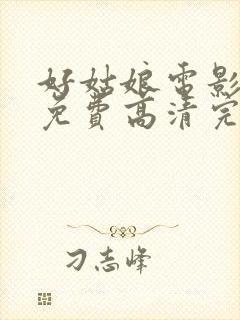 好姑娘电影
免費高清完
刁志峰